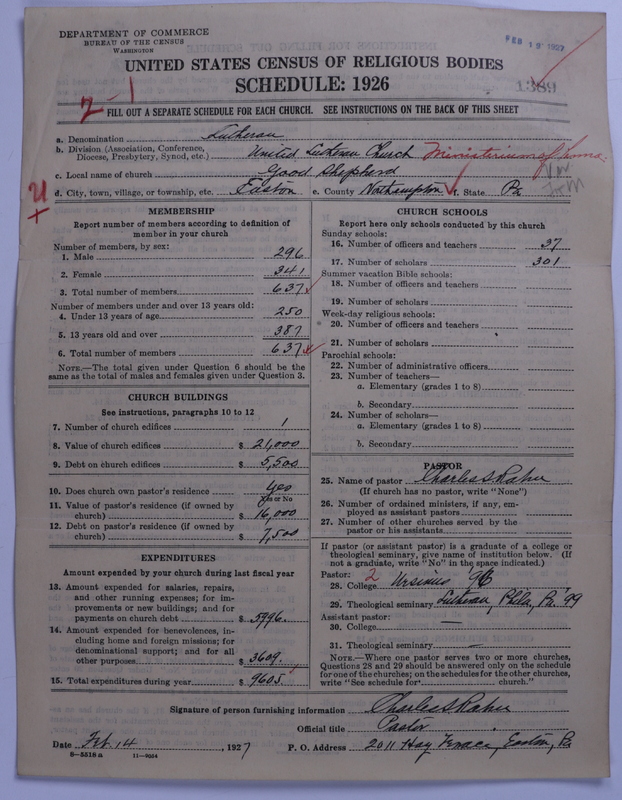 DEPARTMENT OF COMMERCE
BUREAU OF THE CENSUS
WASHINGTON
FEB 15 1927
UNITED STATES CENSUS OF RELIGIOUS BODIES
SCHEDULE: 1926
1389
2-1
FILL OUT A SEPARATE SCHEDULE FOR EACH CHURCH. SEE INSTRUCTIONS ON THE BACK OF THIS SHEET
a. Denomination Lutheran
b. Division (Association, Conference, Diocese, Presbytery, Synod, etc.) United Lutheran Church Ministerium of Penna.
c. Local name of church Good Shepherd
d. City, town, village, or township, etc. Easton e. County Northampton f. State Pa
MEMBERSHIP
Report number of members according to definition of member in your church
Number of members, by sex:
1. Male 296
2. Female 341
3. Total number of members 637
Number of members under and over 13 years old:
4. Under 13 years of age 250
5. 13 years old and over 387
6. Total number of members 637
NOTE.—The total given under Question 6 should be the same as the total of males and females given under Question 3.
CHURCH BUILDINGS
See instructions, paragraphs 10 to 12
7. Number of church edifices 1
8. Value of church edifices $ 21,000
9. Debt on church edifices $ 5,500
10. Does church own pastor's residence Yes
Yes or No
11. Value of pastor's residence (if owned by church) $ 16,000
12. Debt on pastor's residence (if owned by church) $ 7,500
EXPENDITURES
Amount expended by your church during last fiscal year
13. Amount expended for salaries, repairs, and other running expenses; for improvements or new buildings; and for payments on church debt $ 5996.
14. Amount expended for benevolences, including home and foreign missions; for denominational support; and for all other purposes $ 3609.
15. Total expenditures during year $ 9605.
CHURCH SCHOOLS
Report here only schools conducted by this church
Sunday schools:
16. Number of officers and teachers 37
17. Number of scholars 301
Summer vacation Bible schools:
18. Number of officers and teachers
19. Number of scholars
Week-day religious schools:
20. Number of officers and teachers
21. Number of scholars
Parochial schools:
22. Number of administrative officers
23. Number of teachers—
a. Elementary (grades 1 to 8)
b. Secondary
24. Number of scholars—
a. Elementary (grades 1 to 8)
b. Secondary
PASTOR
25. Name of pastor Charles S Rahn
(If church has no pastor, write "None")
26. Number of ordained ministers, if any, employed as assistant pastors
27. Number of other churches served by the pastor or his assistants
If pastor (or assistant pastor) is a graduate of a college or theological seminary, give name of institution below. (If not a graduate, write "No" in the space indicated.)
Pastor: 2
28. College Ursinus 96
29. Theological seminary Lutheran, Phila, Pa. 99
Assistant pastor:
30. College —
31. Theological seminary —
NOTE.—Where one pastor serves two or more churches, Questions 28 and 29 should be answered only on the schedule for one of the churches; on the schedules for the other churches, write "See schedule for church."
Signature of person furnishing information Charles S Rahn
Official title Pastor
Date Feb. 14, 1927 P. O. Address 2011 Hay Terrace, Easton, Pa
8—5518 a 11—9054